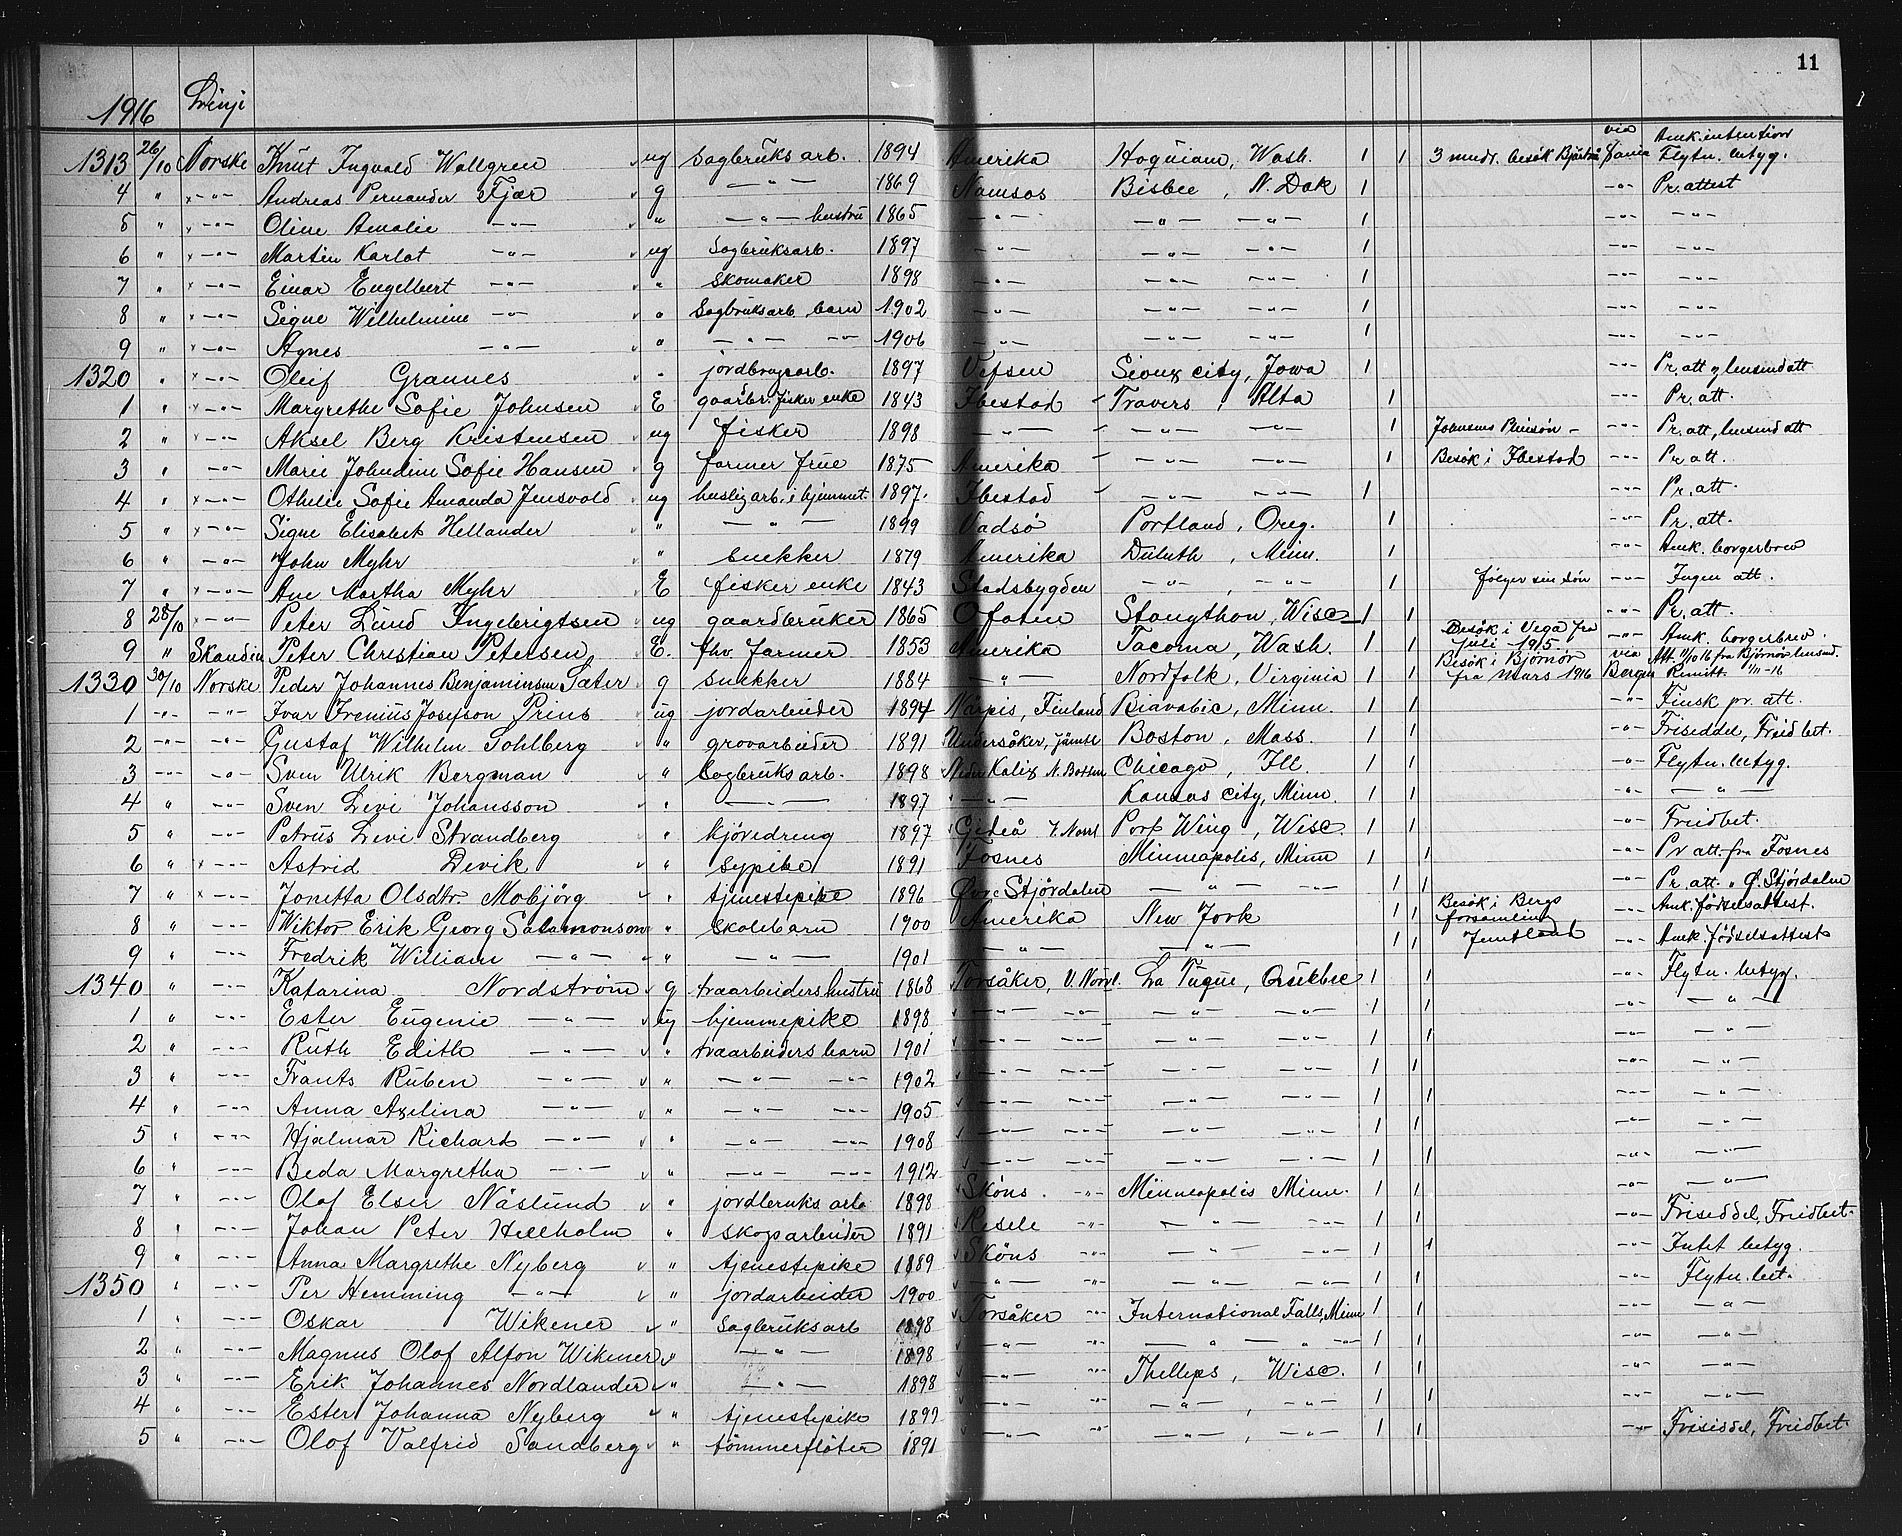 11
1916 Linje
1313 26/10 Norske Knut Ingvald Wallgren ug Sagbruksarb. 1894 Amerika Hoquiam, Wash. 1 1 3 mndr. besök via Amk. intention Flytn. betyg.
4 " x -"- Andreas Pernander Fjær g -"- 1869 Namsos Bisbee, N. Dak 1 -"- Pr. attest
5 " x -"- Oline Amalie -"- " -"- hustru 1865 -"- -"- -"- 1 -"- -"-
6 " x -"- Martin Karlot -"- ug Sagbruksarb. 1897 -"- -"- -"- 1 -"- -"-
7 " x -"- Einar Engelbert -"- " Skomaker 1898 -"- -"- -"- 1 -"- -"-
8 " x -"- Signe Wilhelmine -"- " Sagbruksarb. barn 1902 -"- -"- -"- 1 -"- -"-
9 " x -"- Agnes -"- " -"- -"- 1906 -"- -"- -"- 1 -"- -"-
1320 " x -"- Oleif Grannes " jordbrugsarb. 1897 Vefsen Sioux city, Iowa 1 -"- Pr. att og lensmd att
1 " x -"- Margrethe Sofie Johnsen E gaardbr. fisker enke 1843 Ibestad Travers, Alta 1 -"- Pr. att.
2 " x -"- Aksel Berg Kristensen ug fisker 1898 -"- -"- -"- 1 Johnsens -"- Pr. att, lensmd att
3 " -"- Marie Johndine Sofie Hansen g farmer frue 1875 Amerika -"- -"- 1 Besök i Ibestad -"- Pr. att.
4 " x -"- Othelie Sofie Amanda Jensvold ug huslig arb. i hjemmet 1897. Ibestad -"- -"- 1 -"- Pr. att.
5 " x -"- Signe Elisabet Hellander " -"- 1899 Vadsö Portland, Oreg. 1 -"- Pr. att.
6 " -"- John Myhr " Snekker 1879 Amerika Duluth, Minn. 1 -"- Amk. borgerbrev
7 " x -"- Ane Martha Myhr E fisker enke 1843 Stadsbygden -"- -"- 1 følger sin søn -"- Ingen att.
8 28/10 x -"- Peter Lund Ingebrigtsen ug gaardbruker 1865 Ofoten Stoughton, Wisc 1 1 -"- Pr. att.
9 " Skandin Peter Christian Petersen E. fhv. farmer 1853 Amerika Tacoma, Wash. 1 1 Besök i Vega fra juli 1915 -"- Amk. borgerbrev.
1330 30/10 Norske Peder Johannes Benjaminsen Sæter g Snekker 1884 -"- Nordfolk, Virginia 1 1 Besök i Bjørnør fra mars 1916 via Bergen Att. 9/10 16 fra Bjørnør lensmd. Remitt. 1/11-16
1 -"- -"- Ivar Irenius Josefson Prins ug jordarbeider 1894 Närpes, Finland Biavabic, Minn. 1 1 -"- Finsk pr. att.
2 -"- -"- Gustaf Wilhelm Sohlberg " grovarbeider 1891 Undersåker, Jämtl Boston, Mass. 1 1 -"- Friseddel, Freidbet.
3 -"- -"- Sven Ulrik Bergman " Sagbruksarb. 1898 Neder Kalix N. Botten Chicago, Ill. 1 1 -"- Flytn. betyg.
4 " -"- Sven Levi Johansson " -"- 1897 -"- Kansas city, Minn. 1 1 -"- -"-
5 " -"- Petrus Levi Strandberg " kjøredreng 1897 Gideå V. Norrl Port Wing, Wisc. 1 1 -"- Freidbet.
6 " x -"- Astrid Devik " Sypike 1891 Fosnes Minneapolis, Minn 1 1 -"- Pr att. fra Fosnes
7 " x -"- Jonetta Olsdtr. Mobjörg " tjenestepike 1896 Øvre Stjördalen -"- -"- 1 1 -"- Pr. att. " Ø. Stjördalen
8 " -"- Wiktor Erik Georg Salamonson " Skolebarn 1900 Amerika New York 1 1 Besök i Bergs forsamling -"- Amk. fødselsattest.
9 " -"- Fredrik William -"- " -"- 1901 -"- -"- 1 1 Jemtland -"- Amk. fødselsattest
1340 " -"- Katarina Nordström g traarbeiders hustru 1868 Torsåker, V. Norrl. La Tuque, Quebec 1 1 -"- Flytn. betyg.
1 " -"- Ester Eugenie -"- ug hjemmepike 1898 -"- -"- -"- -"- 1 1 -"- -"-
2 " -"- Ruth Edith -"- " traarbeiders barn 1901 -"- -"- -"- -"- 1 1 -"- -"-
3 " -"- Frants Ruben -"- " -"- -"- 1902 -"- -"- -"- -"- 1 1 -"- -"-
4 " -"- Anna Axelina -"- " -"- -"- 1905 -"- -"- -"- -"- 1 1 -"- -"-
5 " -"- Hjalmar Richard -"- " -"- -"- 1908 -"- -"- -"- -"- 1 1 -"- -"-
6 " -"- Beda Margretha -"- " -"- -"- 1912 -"- -"- -"- -"- 1 1 -"- -"-
7 " -"- Olof Elser Näslund " jordbruks arb 1898 Sköns. -"- Minneapolis Minn. 1 1 -"- -"-
8 " -"- Johan Peter Hellholm " skogsarbeider 1891 Resele -"- -"- -"- 1 1 -"- Friseddel, Freidbet.
9 " -"- Anna Margrethe Nyberg " tjenestepike 1889 Sköns -"- -"- -"- 1 1 -"- Intet betyg.
1350 " -"- Per Hemming -"- " jordarbeider 1900 -"- -"- -"- -"- 1 1 -"- Flytn. bet.
1 " -"- Oskar Wikener " Sagbruksarb 1898 Torsåker -"- International Falls, Minn 1 1 -"- -"-
2 " -"- Magnus Olof Alfon Wikener " -"- 1898 -"- -"- -"- -"- 1 1 -"- -"-
3 " -"- Erik Johannes Nordlander " -"- 1898 -"- -"- Phillips, Wisc. 1 1 -"- -"-
4 " -"- Ester Johanna Nyberg " tjenestepike 1899 -"- -"- -"- -"- 1 1 -"- -"-
5 " -"- Olof Valfrid Sandberg " tömmerfløter 1891 -"- -"- -"- -"- 1 1 -"- Friseddel, Freidbet.